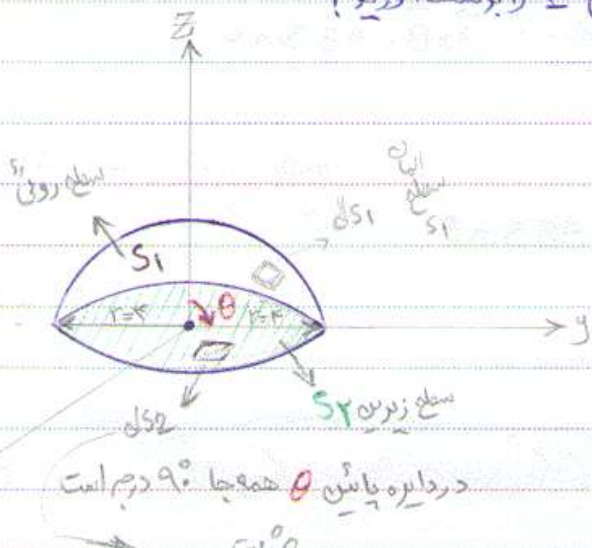 را بدست آورید؟
Z
سطح رویی
S1
dS1
المان
سطح
S1
r=4
θ
r=4
y
dS2
S2 سطح زیرین
در دایره پائین θ همه جا 90° درجه است